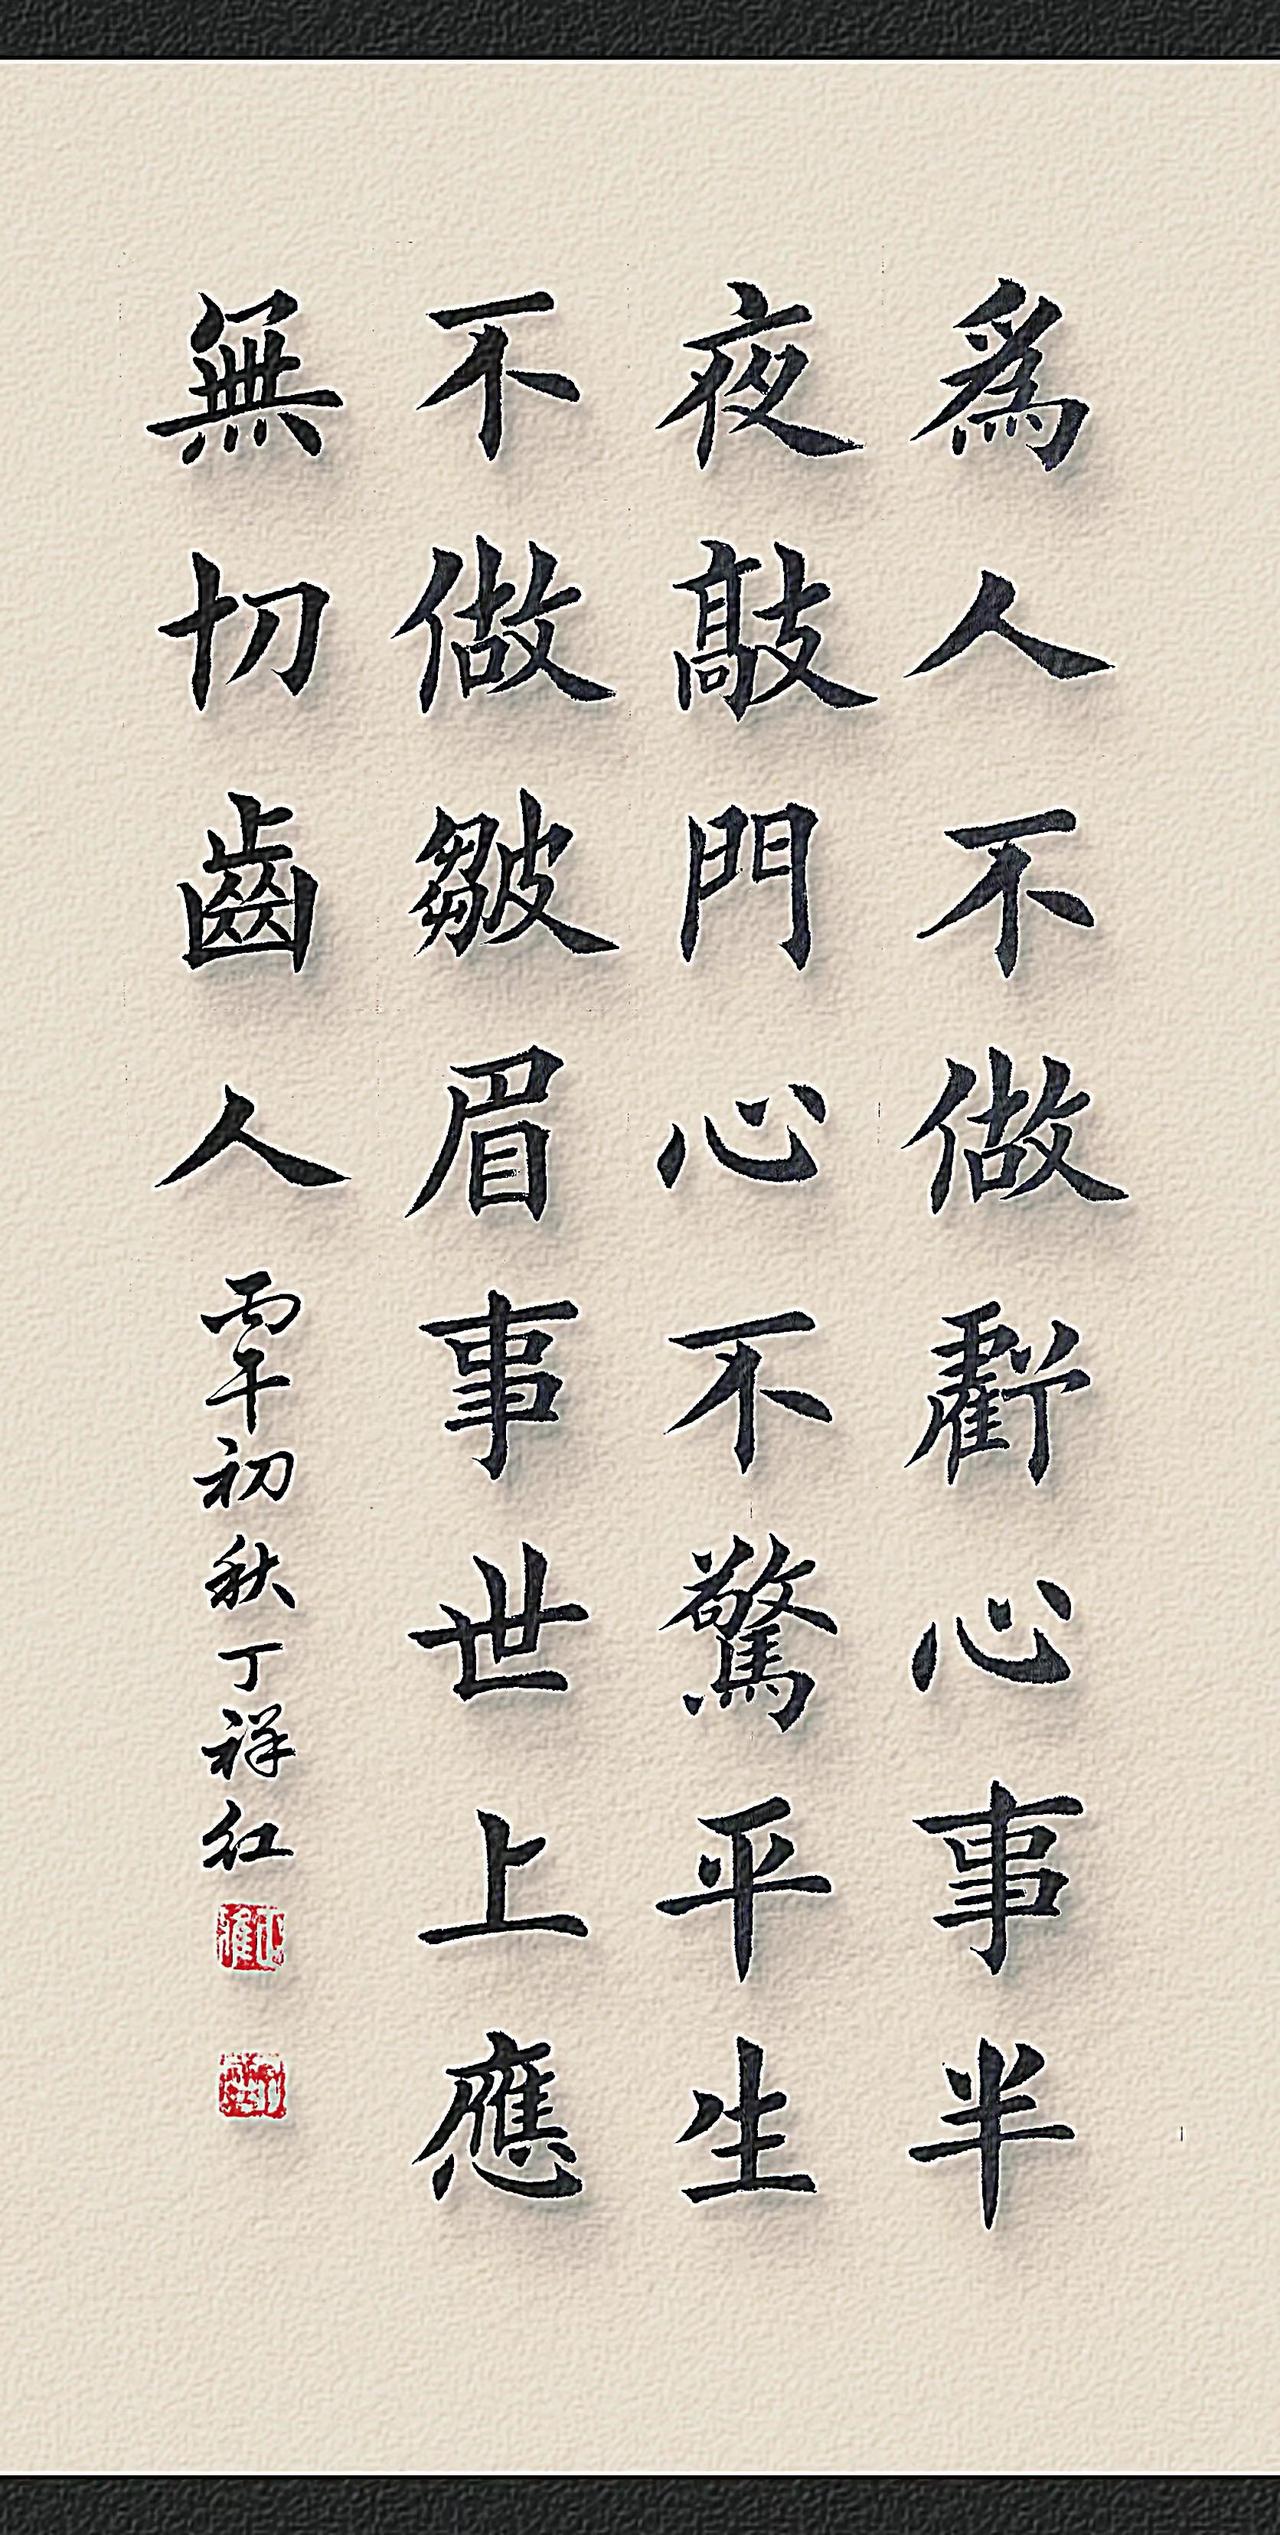 爲人不做虧心事半
夜敲門心不驚平生
不做皺眉事世上應
無切齒人
丙午初秋丁祥红